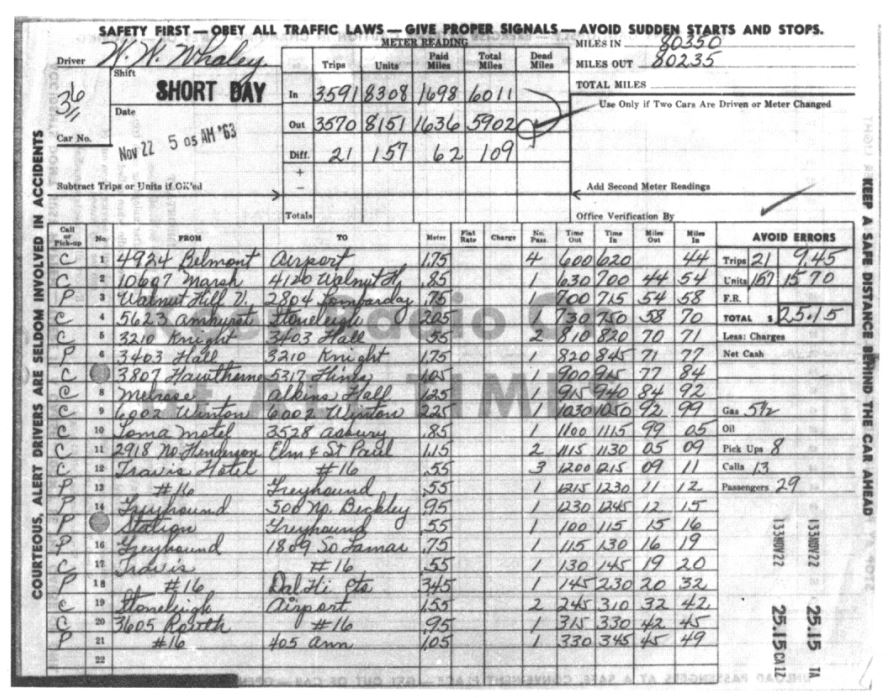 SAFETY FIRST — OBEY ALL TRAFFIC LAWS — GIVE PROPER SIGNALS — AVOID SUDDEN STARTS AND STOPS.
Driver W. W. Whaley
METER READING
MILES IN 80350
MILES OUT 80235
TOTAL MILES
Shift SHORT DAY
Trips Units Paid Miles Total Miles Dead Miles
36
In 3591 8308 1698 6011
Use Only if Two Cars Are Driven or Meter Changed
Date
Out 3570 8151 1636 5902
Car No.
Nov 22 5 05 AM '63
Diff. 21 157 62 109
+
Subtract Trips or Units if OK'ed
−
Add Second Meter Readings
Totals
Office Verification By
Call or Pick-up No. FROM TO Meter Flat Rate Charge No. Pass. Time Out Time In Miles Out Miles In AVOID ERRORS
C 1 4924 Belmont Airport 1.75 4 600 620 44 Trips 21 9.45
C 2 10607 Marsh 4120 Walnut H .85 1 630 700 44 54 Units 157 15 70
P 3 Walnut Hill V. 2804 Lombarday .75 1 700 715 54 58 F.R.
C 4 5623 Amhurst Stoneleigh 205 1 730 750 58 70 TOTAL $ 25.15
C 5 3210 Knight 3403 Hall .55 2 810 820 70 71 Less: Charges
P 6 3403 Hall 3210 Knight 1.75 1 820 845 71 77 Net Cash
C 3807 Hawthorne 5317 Hines 1.05 1 900 915 77 84
C 8 Melrose Alkins Hall 125 1 915 940 84 92
C 9 6002 Winton 6002 Winton 225 1 1030 1050 92 99 Gas 5½
C 10 Loma Motel 3528 Asbury .85 1 1100 1115 99 05 Oil
C 11 2918 No. Henderson Elm & St Paul 1.15 2 1115 1130 05 09 Pick Ups 8
C 12 Travis Hotel #16 .55 3 1200 1215 09 11 Calls 13
P 13 #16 Greyhound .55 1 1215 1230 11 12 Passengers 29
P 14 Greyhound 500 No. Beckley 95 1 1230 1245 12 15
P Station Greyhound .55 1 100 115 15 16
P 16 Greyhound 1809 So Lamar .75 1 115 130 16 19
C 17 Travis #16 .55 1 130 145 19 20
P 18 #16 Dal Hi Pts 345 1 145 230 20 32
C 19 Stoneleigh Airport 155 2 245 310 32 42
C 20 3605 Routh #16 .95 1 315 330 42 45
P 21 #16 405 Ann 1.05 1 330 345 45 49
22
COURTEOUS, ALERT DRIVERS ARE SELDOM INVOLVED IN ACCIDENTS
KEEP A SAFE DISTANCE BEHIND THE CAR AHEAD
133NOV22 25.15 CA1Z
133NOV22 25.15 TA